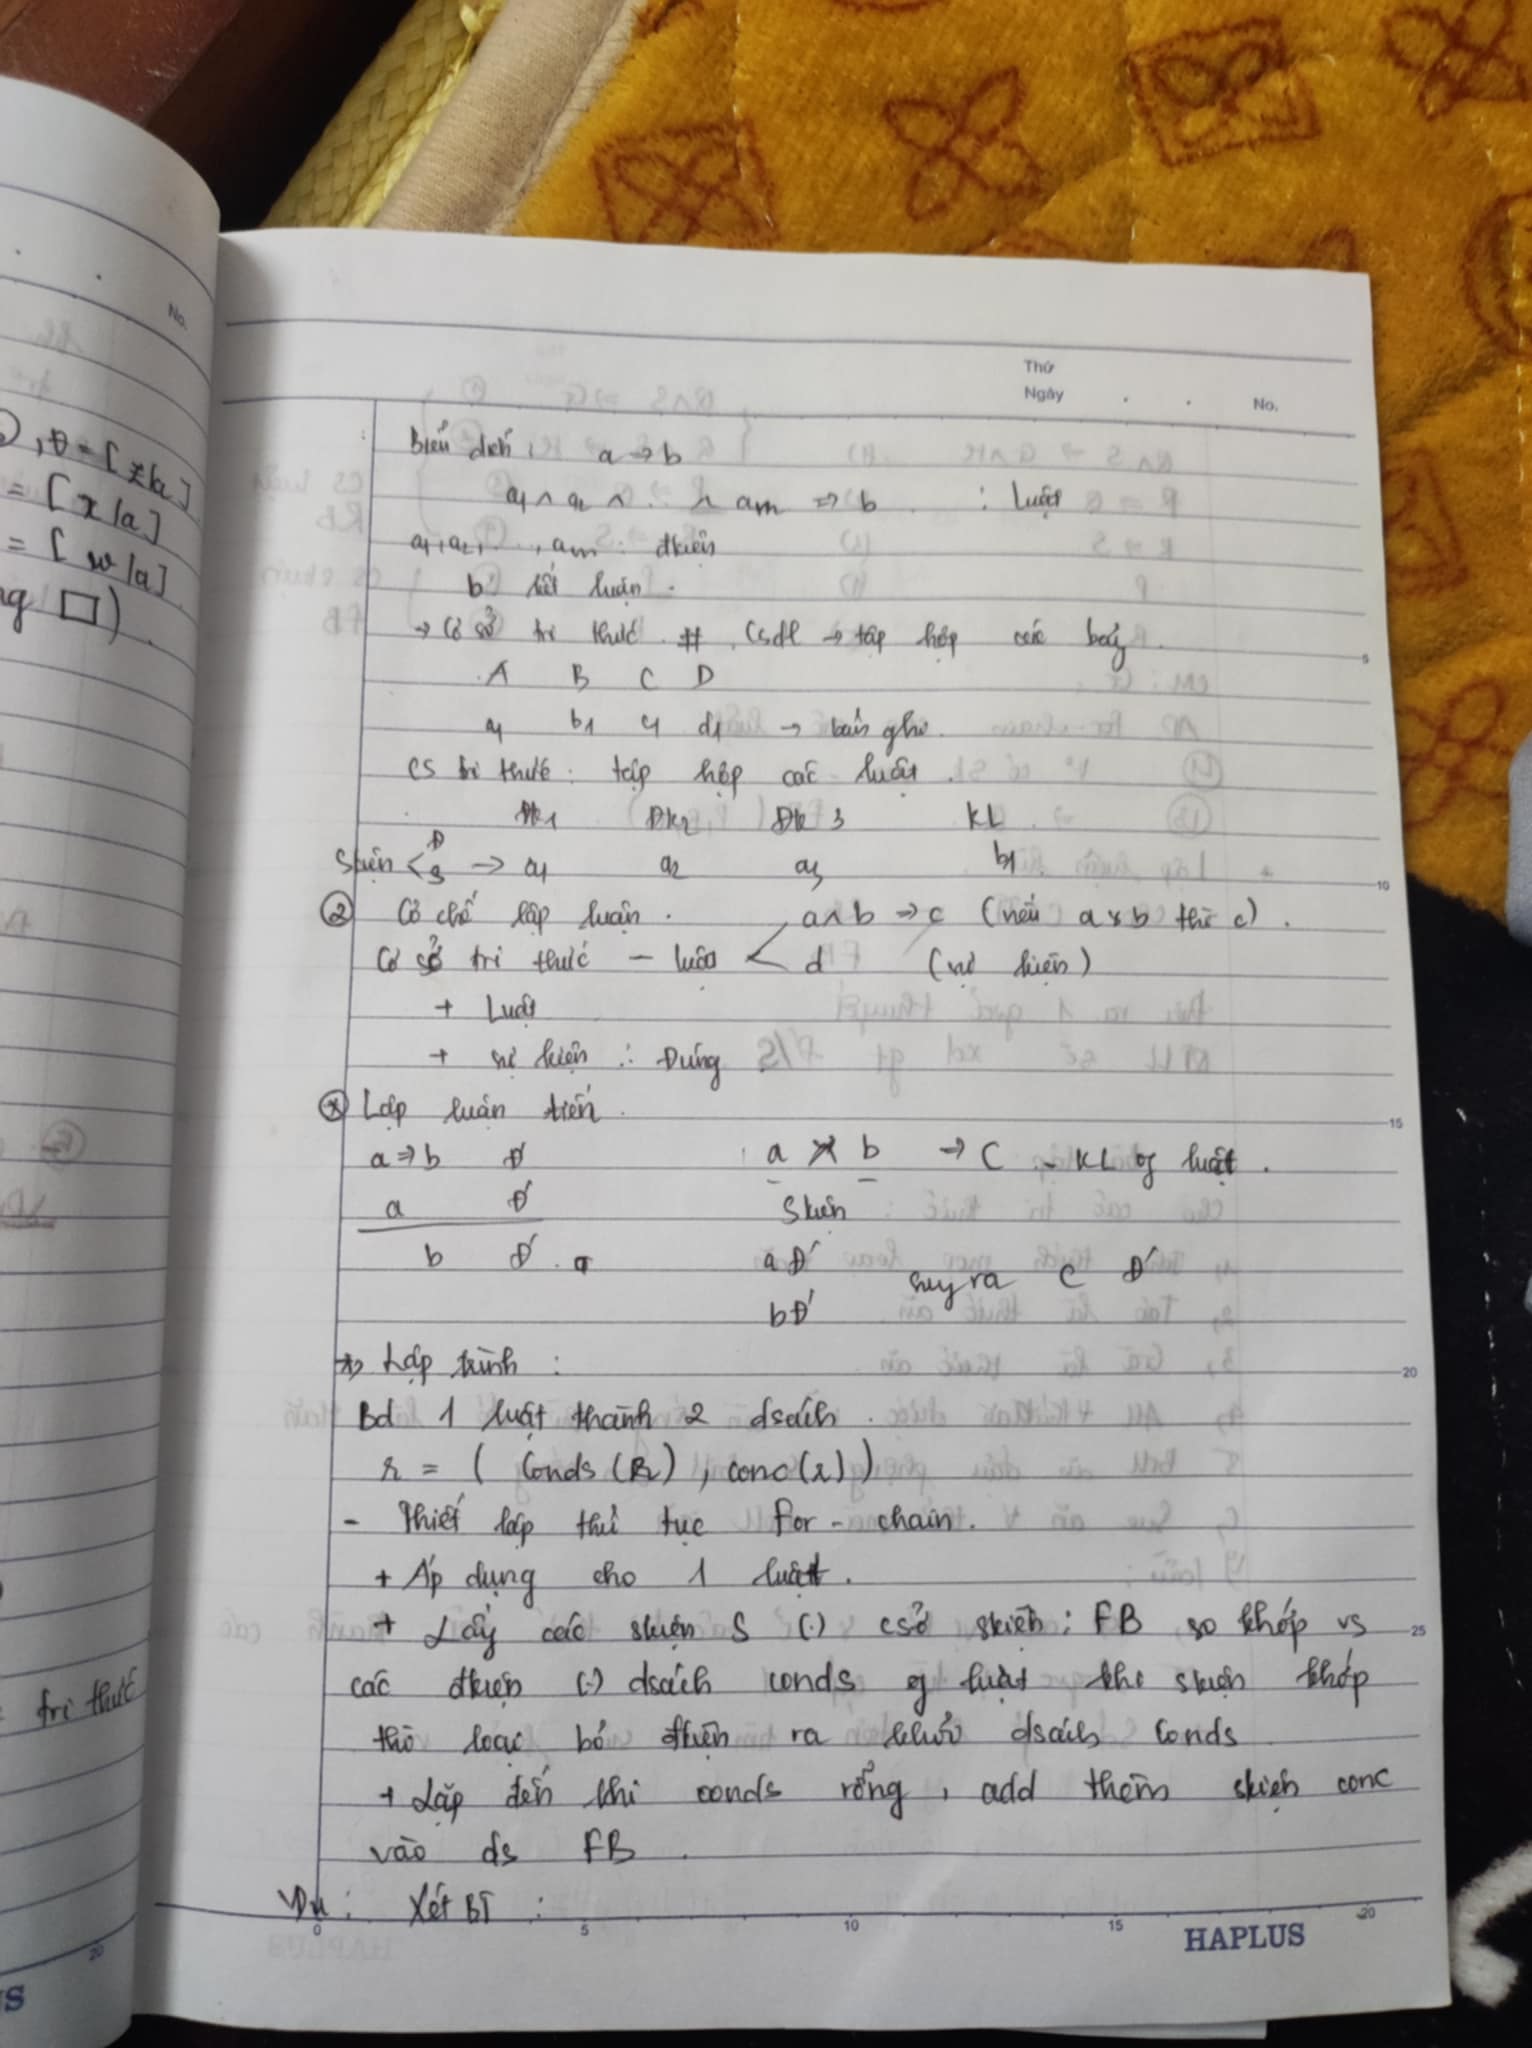 No.
, Đ = [z/a]
= [x/a]
= [w/a]
ng □)
tri thức
Thứ
Ngày . . No.
Biểu diễn : a → b
a1 ∧ a2 ∧ .. ∧ am ⇒ b : Luật
a1, a2, ..., am : đkiện
b : kết luận .
→ Cơ sở tri thức # csdl → tập hợp các bảng
A B C D
a1 b1 c1 d1 → bản ghi.
CS tri thức : tập hợp các luật.
Đk1 Đk2 Đk3 KL
Skiện < Đ S → a1 a2 a3 b1
② Cơ chế lập luận . a ∧ b → c (nếu a x b thì c) .
Cơ sở tri thức - luật < d (sự kiện)
+ Luật
+ sự kiện : Đúng Đ/S
* Lập luận tiến .
a → b Đ a ∧ b → C - KL of luật .
a Đ Skiện
b Đ a Đ suy ra C Đ
b Đ
* Lập trình :
Bd 1 luật thành 2 dsách .
r = ( Conds (R) , conc(r) )
- Thiết lập thủ tục For - chain .
+ Áp dụng cho 1 luật .
+ Lấy các skiện S (.) csở skiện : FB so khớp vs
các đkiện (.) dsách conds of luật khi skiện khớp
thì loại bỏ đkiện ra khỏi dsách Conds
+ Lặp đến khi conds rỗng , add thêm skiện conc
vào ds FB .
VDụ : Xét BT :
5
10
15
20
25
0 5 10 15 20
HAPLUS
20
US